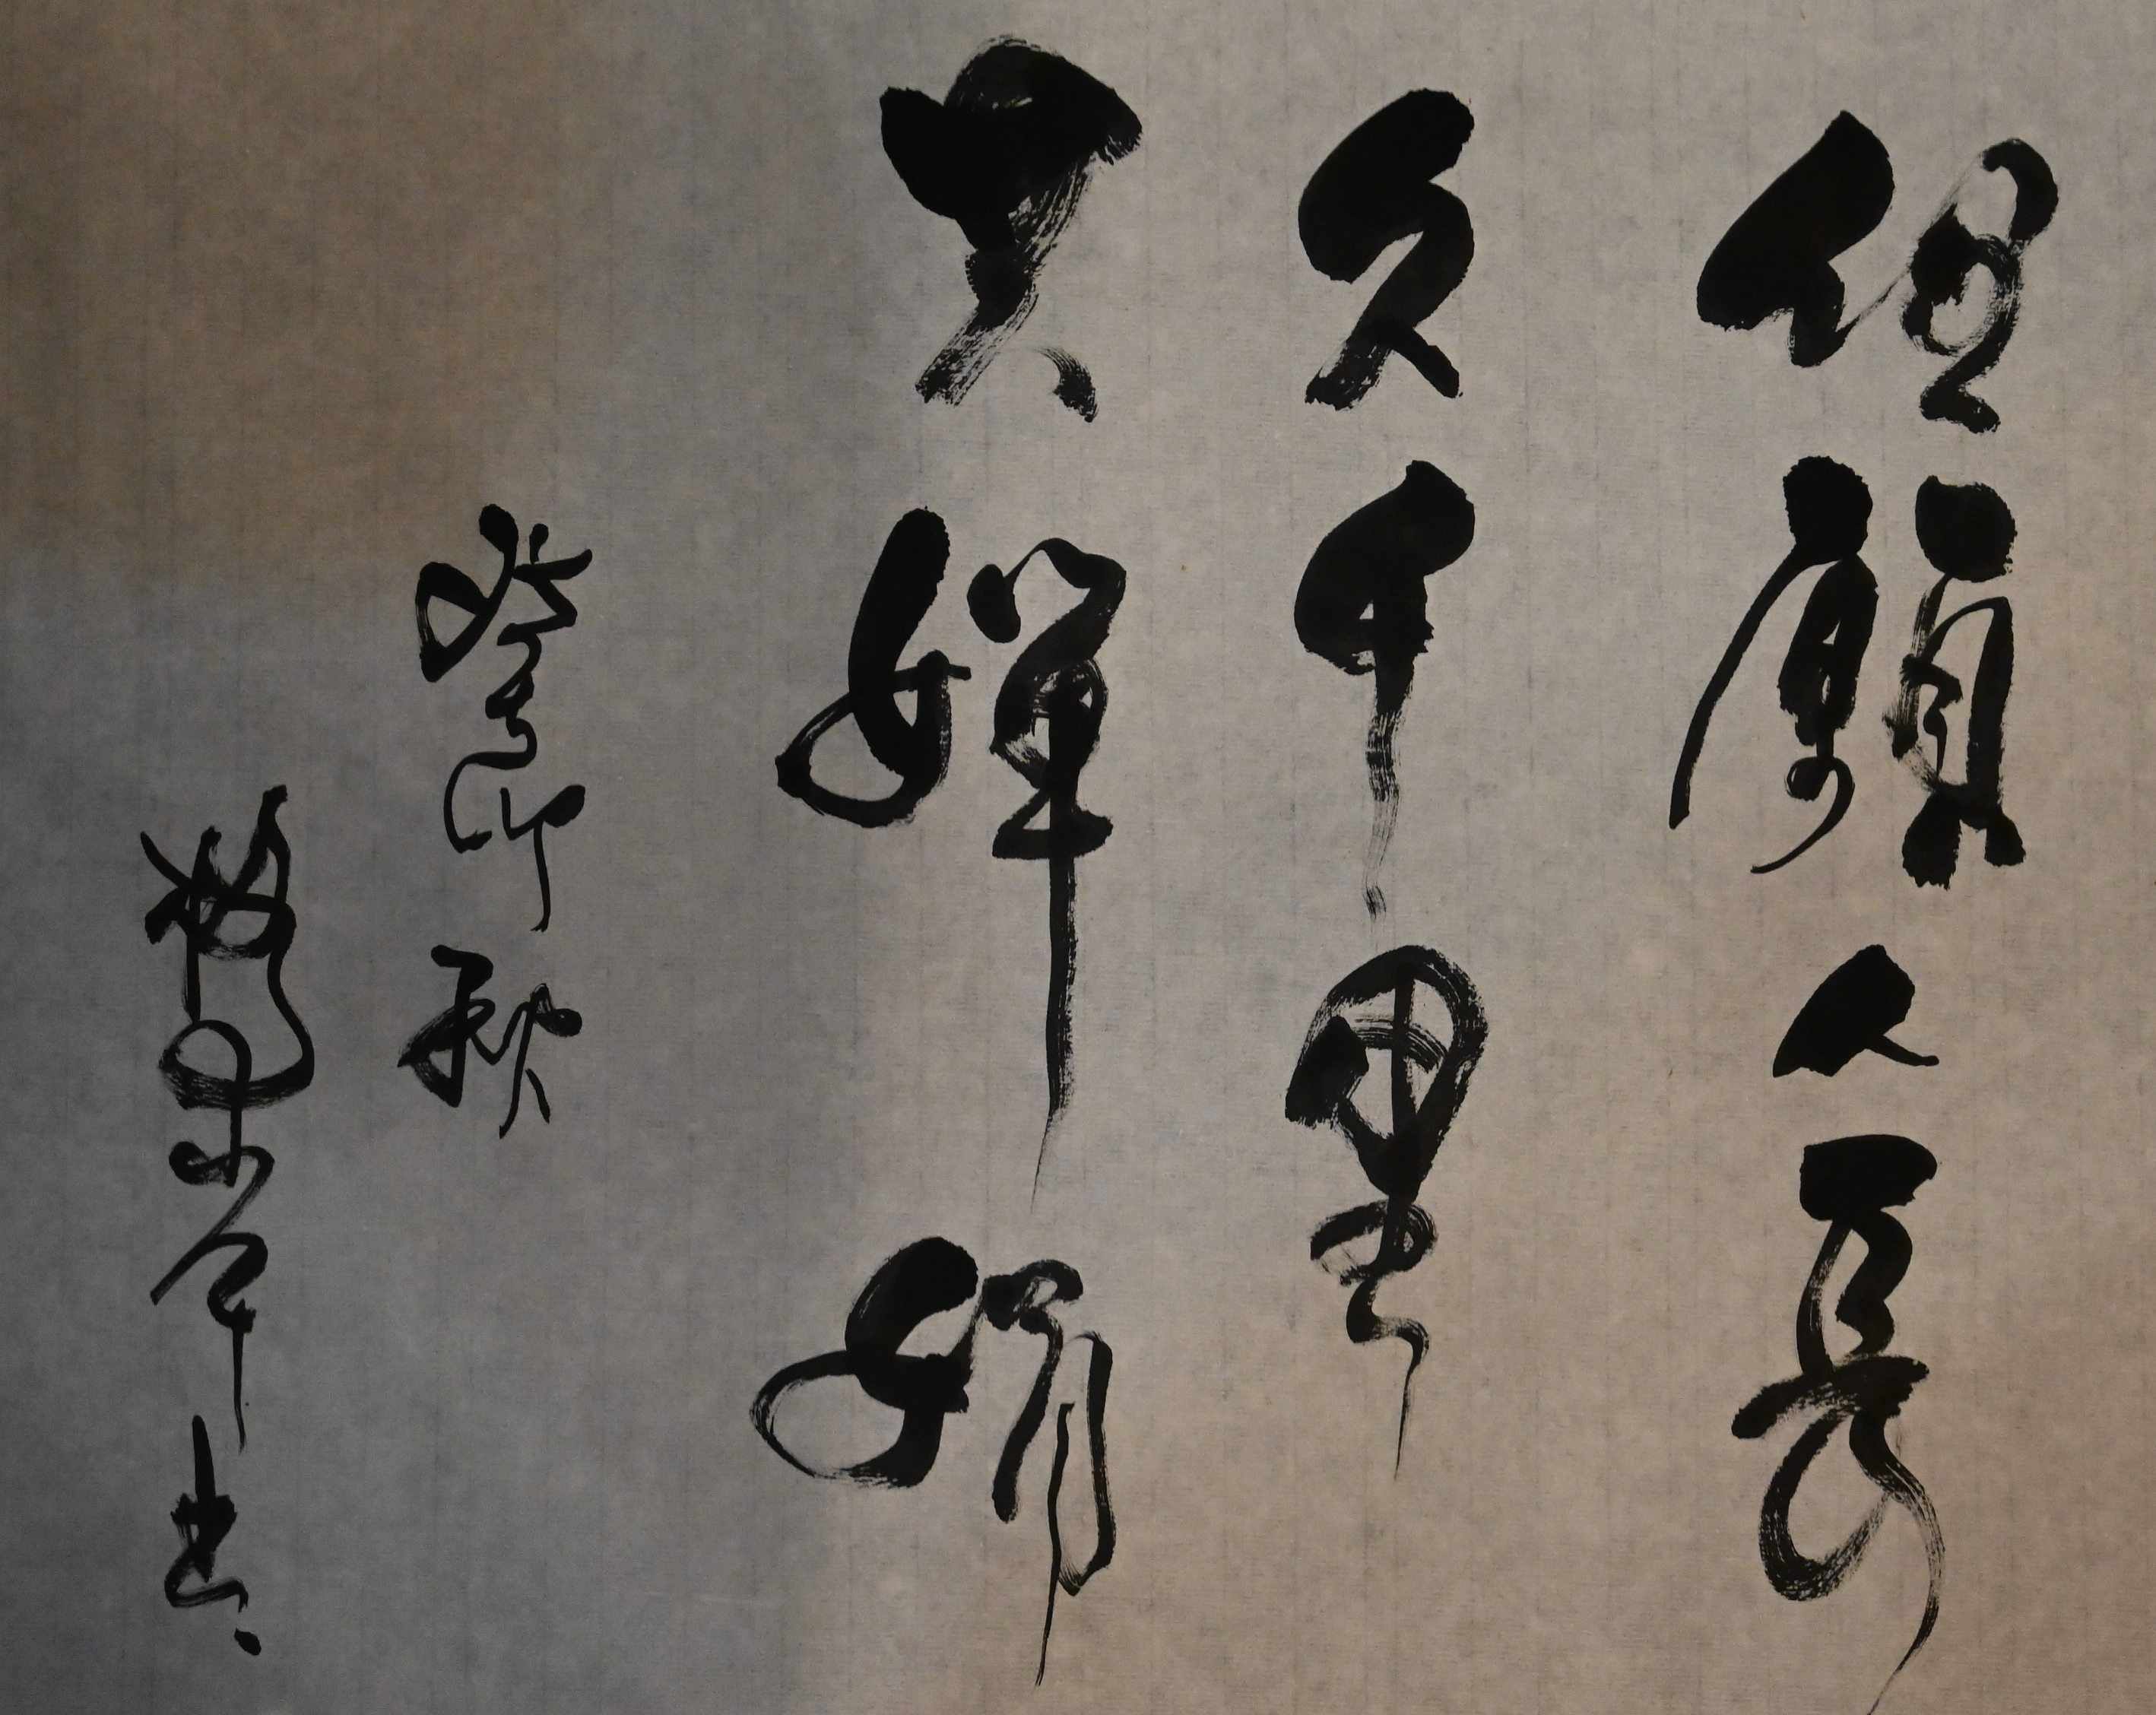 但願人長
久千里
共嬋娟
癸卯秋
書